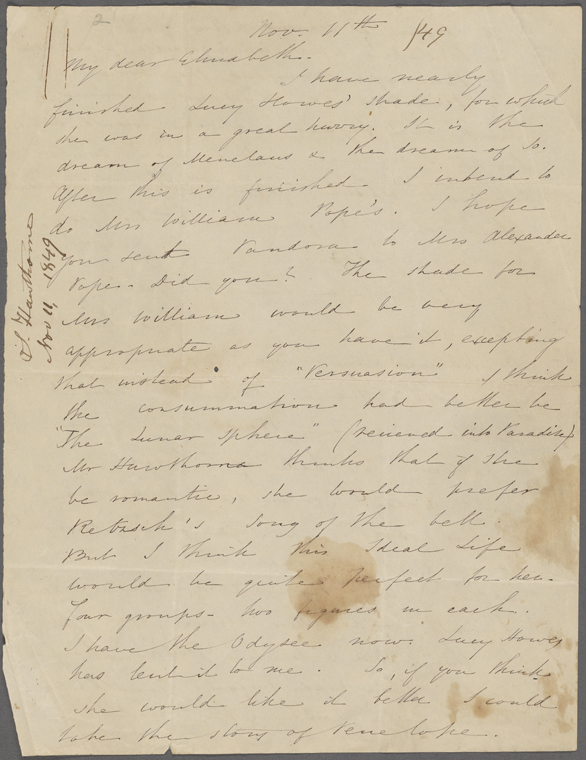 2
Nov. 11th /49
My dear Elizabeth.
I have nearly
finished Lucy Howes' shade, for which
she was in a great hurry. It is the
dream of Menelaus & the dream of Io.
After this is finished I intend to
do Mrs William Pope's. I hope
you sent Pandora to Mrs Alexander
Pope. Did you? The shade for
Mrs William would be very
appropriate as you have it, excepting
that instead of "Persuasion" I think
the consummation had better be
"The Lunar Sphere" (received into Paradise)
Mr Hawthorne thinks that if she
be romantic, she would prefer
Retzsch's Song of the bell.
But I think this Ideal Life
would be quite perfect for her.
Four groups - two figures in each.
I have the Odysee now. Lucy Howes
has lent it to me. So, if you think
she would like it better I could
take the story of Penelope.
S. Hawthorne
Nov 11, 1849